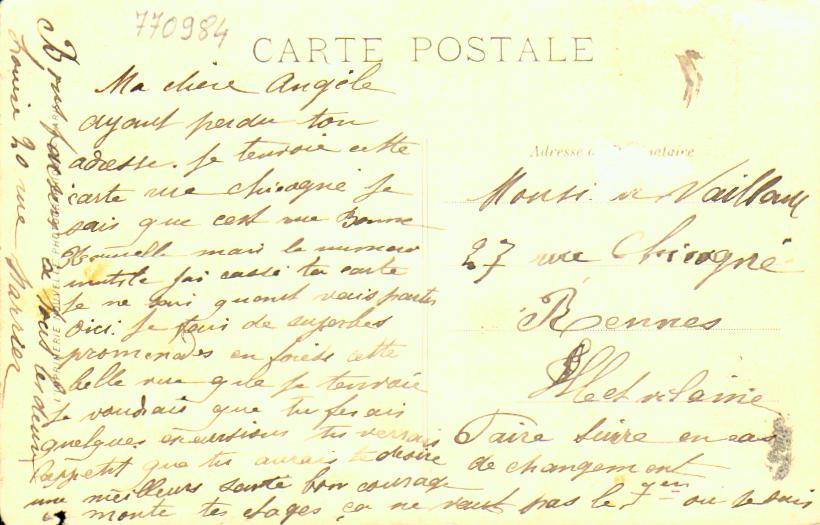 770984
CARTE POSTALE
Ma chère Angèle
ayant perdu ton
adresse. Je tenvoie cette
carte rue Chicogné je
sais que c'est rue Bonne
Nouvelle mais le numero
inutile j'ai cassé ta carte
Je ne sais quant vais partir
dici. Je fais de superbes
promenades en forêts cette
belle vue que je tenvoie
Je voudrais que tu ferais
quelques excursions tu verrais
lappétit que tu aurais te desire
une meilleurs santé bon courage
monte tes etages ça ne vaut pas le 7 em ou je suis
Bons baisers à tous les deux
Louise 20 rue
Adresse du
Monsieur Vaillant
27 rue Chicogné
Rennes
Ille et vilaine
Faire suivre en cas
de changement
IMPRIMERIE NOUVELLE PHOTO